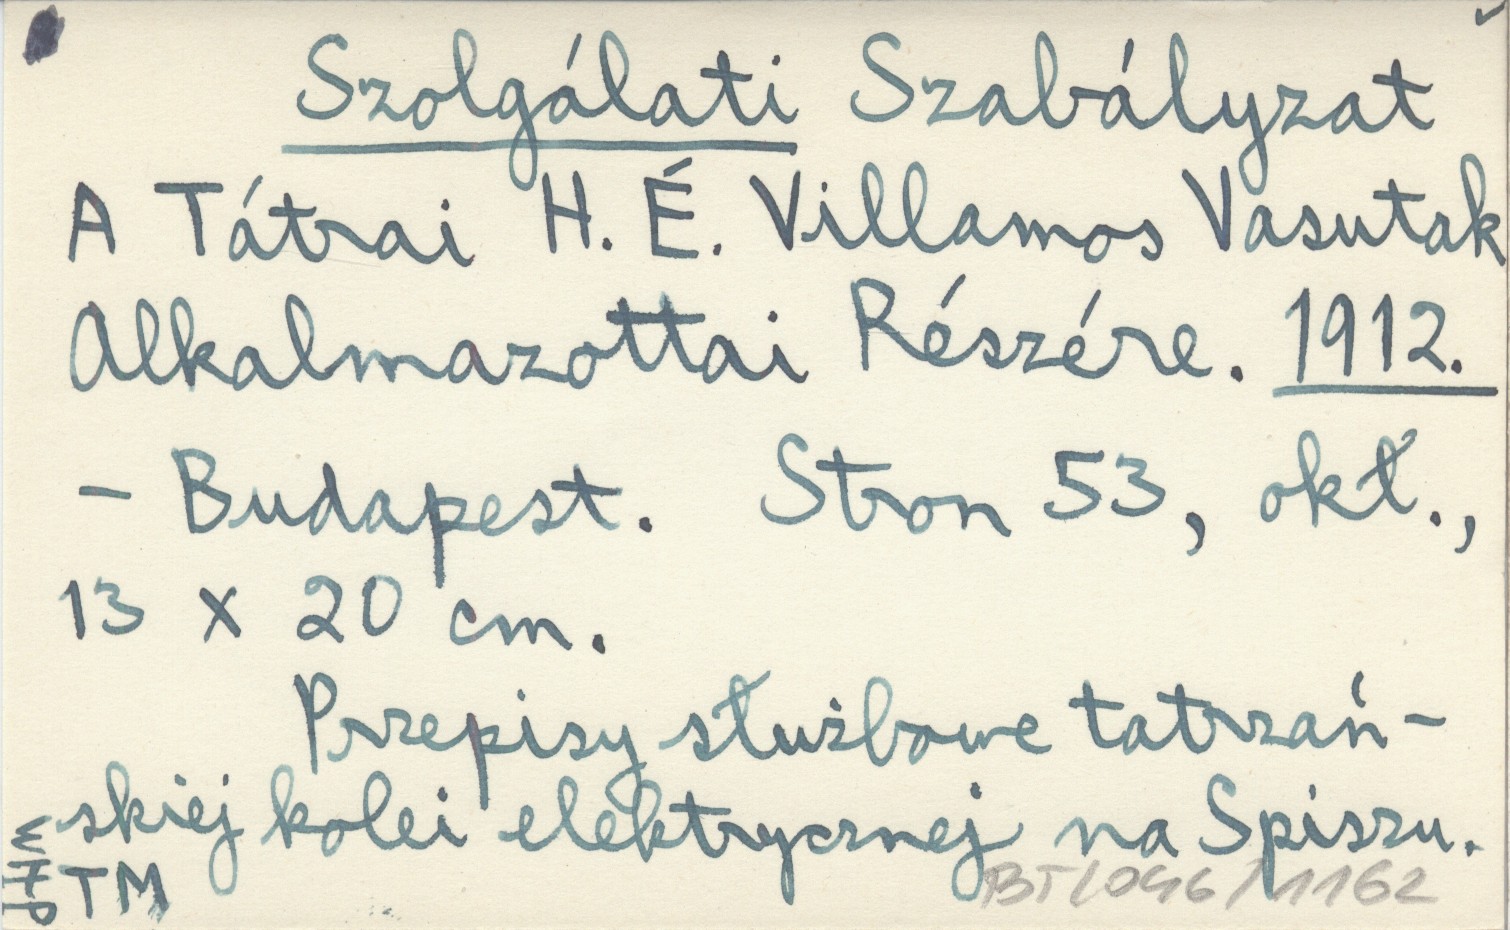 Szolgálati Szabályzat
A Tátrai H. É. Villamos Vasutak
Alkalmazottai Részére. 1912.
- Budapest. Stron 53, okł.,
13 x 20 cm.
Przepisy służbowe tatrzań-
skiej kolei elektrycznej na Spiszu.
TM
BT/046/1162